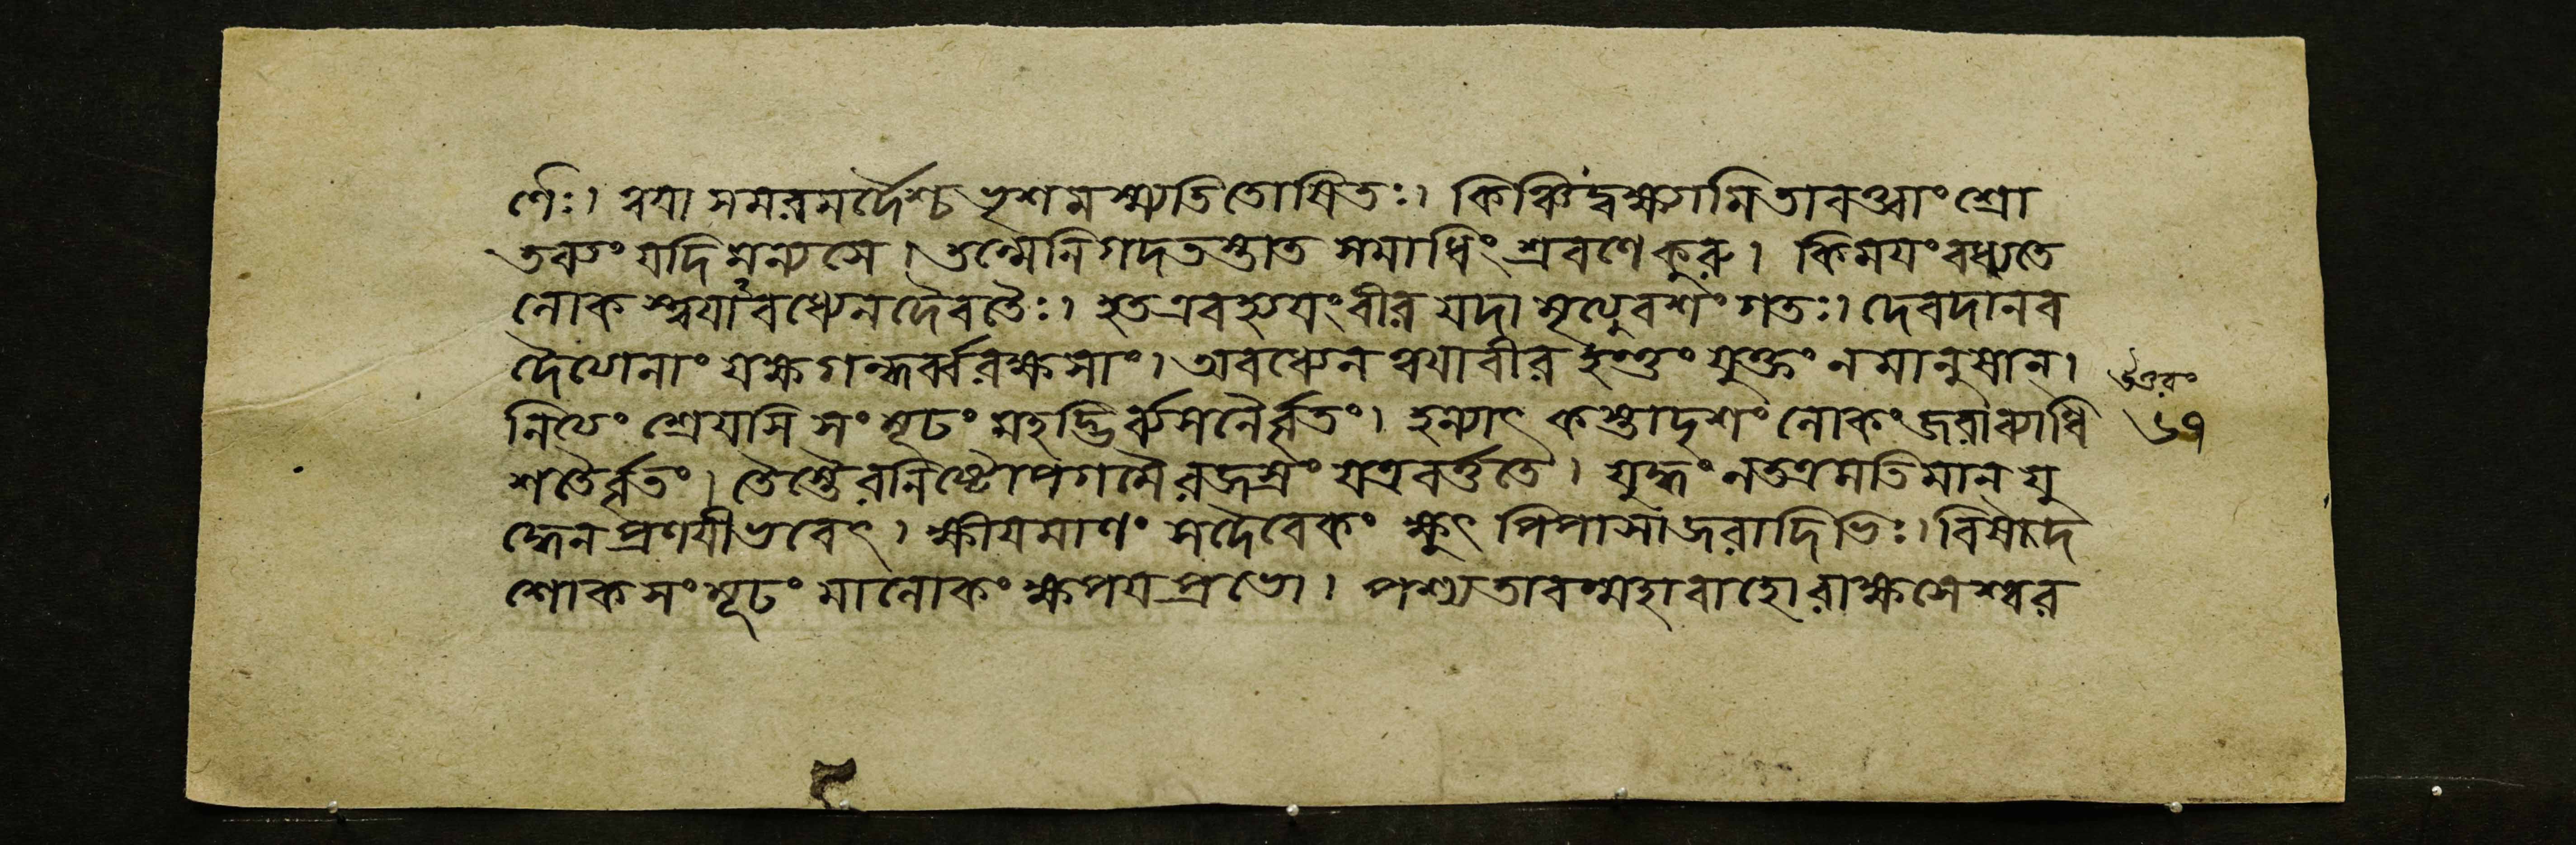 র্ণৈঃ। ত্বযা সমরমর্দৈশ্চ ভৃশমস্ম্যতিতোষিতঃ। কিঞ্চিদ্বক্ষ্যামি তাবত্ত্বাং শ্রো
তব্যং যদি মন্যসে। তন্মে নিগদতস্তাত সমাধিং শ্রবণে কুরু। কিমযং বধ্যতে
লোকস্ত্বযাবধ্যেন দৈবতৈঃ। হত এব হ্যযং বীর যদা মৃত্যুবশং গতঃ। দেবদানব
দৈত্যানাং যক্ষগন্ধর্ব্বরক্ষসাং। অবধ্যেন ত্বযা বীর হন্তুং যুক্তং ন মানুষান্।
নিত্যং শ্রেযসি সংমূঢং মহদ্ভির্ব্যসনৈর্বৃতং। হন্যাৎ কস্তাদৃশং লোকং জরাব্যাধি
শতৈর্বৃতং। তৈস্তৈরনিষ্টোপগমৈরজস্রং যত্র বর্ত্ততে। যুদ্ধং ন তত্র মতিমান্ যু
দ্ধেন প্রণযী ভবেৎ। ক্ষীযমাণং সদৈবেকং ক্ষুৎপিপাসাজরাদিভিঃ। বিষাদ
শোকসংমূঢং মা লোকং ক্ষপয প্রভো। পশ্য তাবন্মহাবাহো রাক্ষসেশ্বর
উত্তরং
৬৭